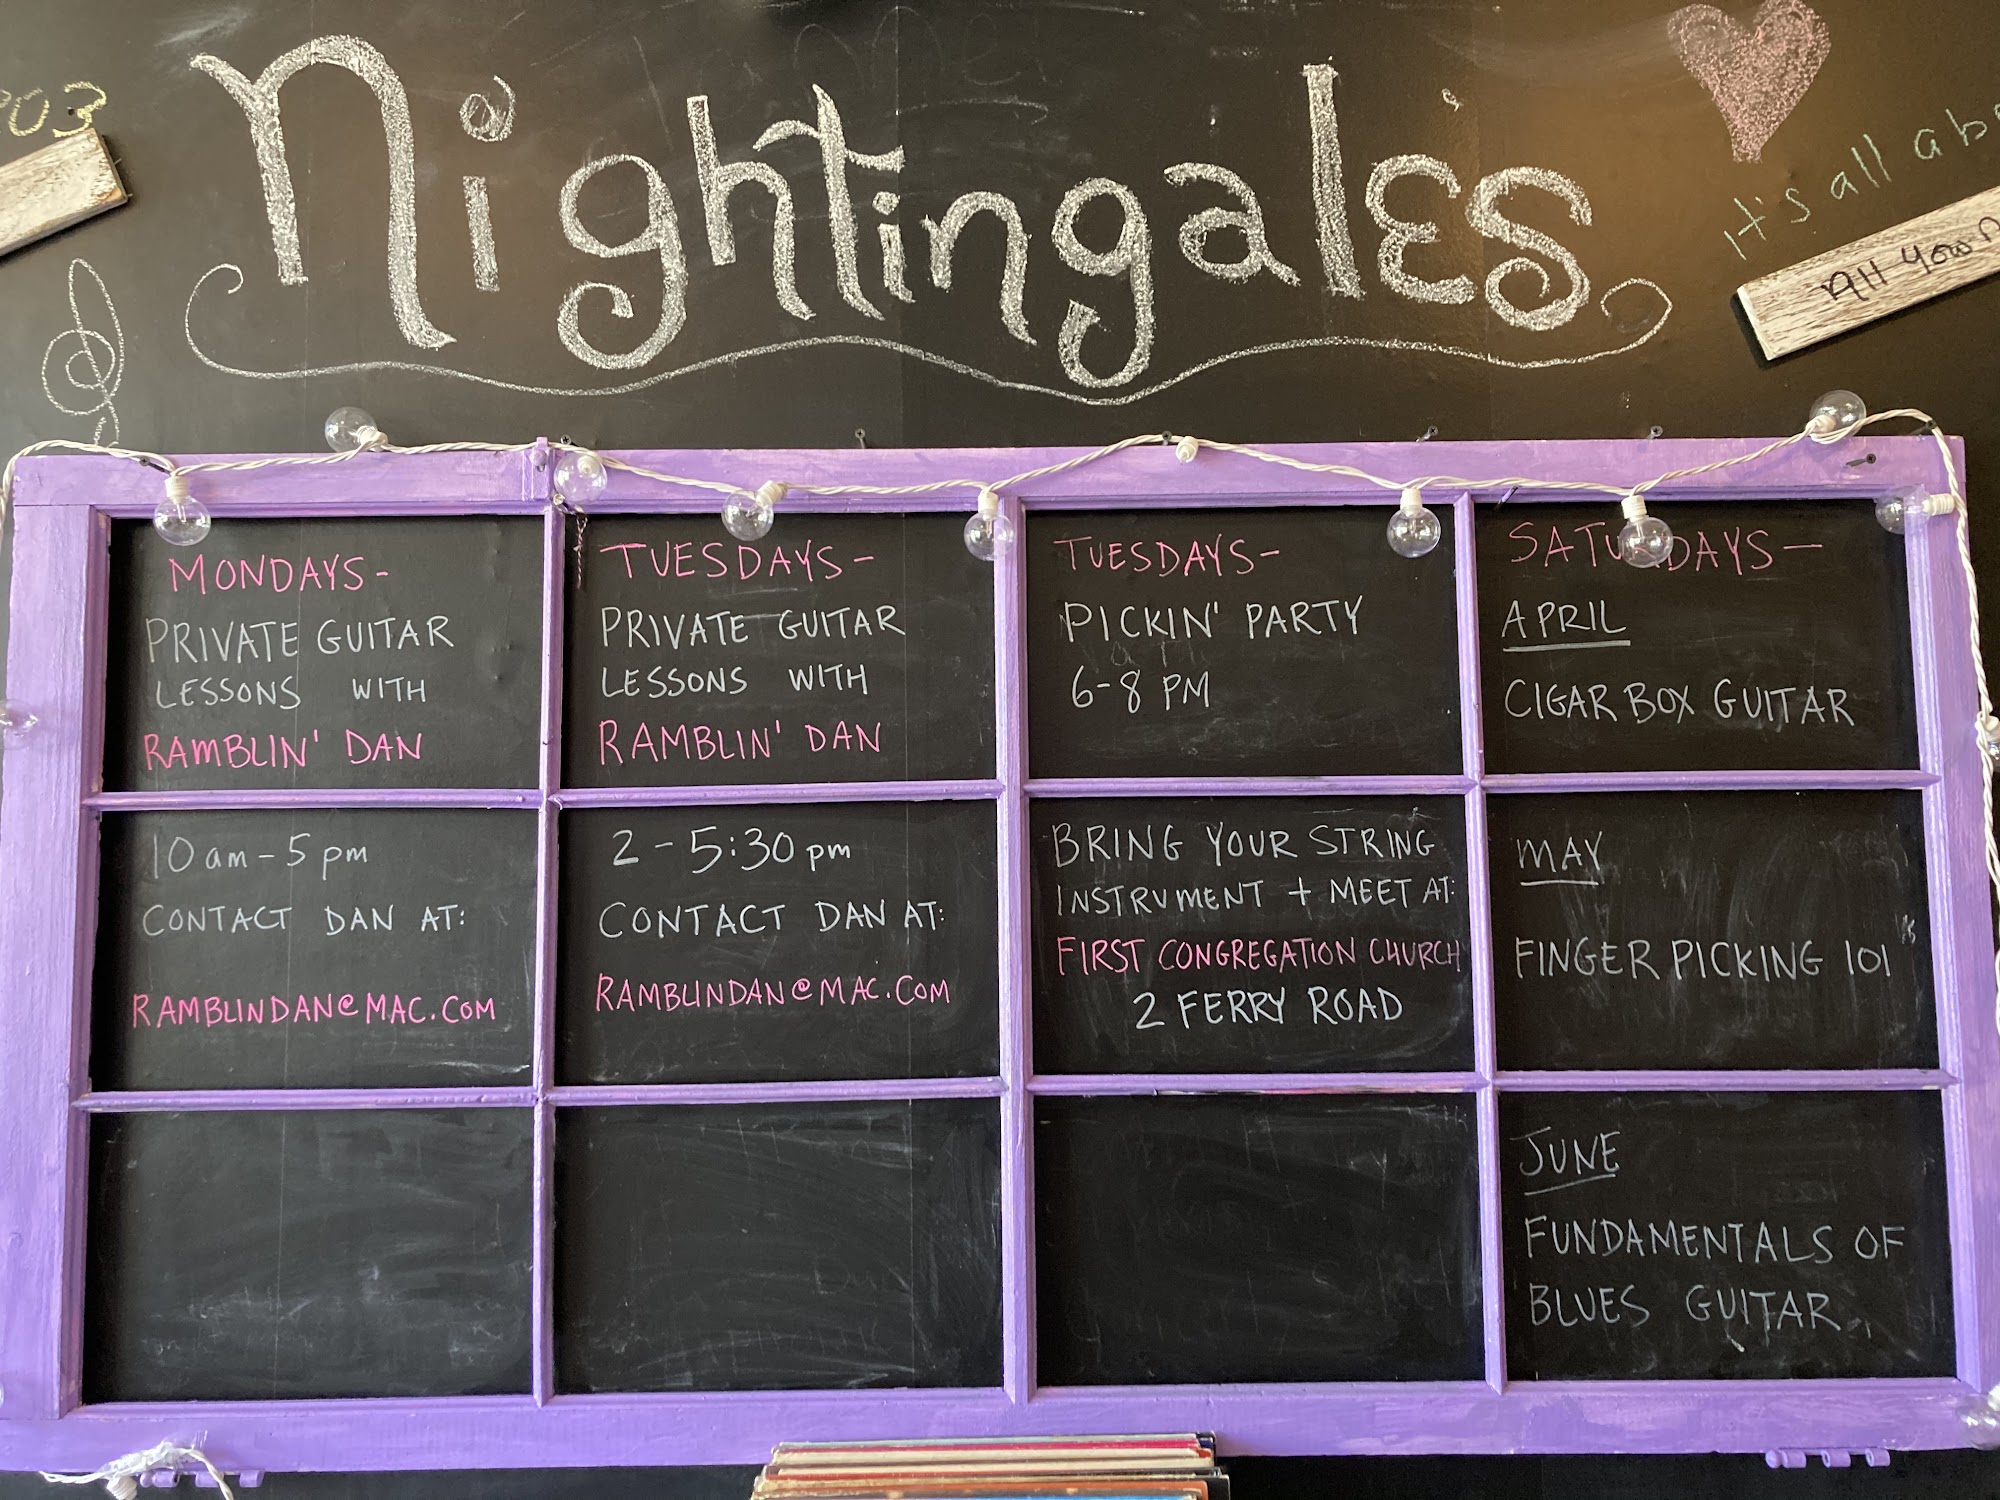 Nightingale's
203
It's all abo
All you n
MONDAYS-
PRIVATE GUITAR
LESSONS WITH
RAMBLIN' DAN
10 am - 5 pm
CONTACT DAN AT:
RAMBLINDAN@MAC.COM
TUESDAYS-
PRIVATE GUITAR
LESSONS WITH
RAMBLIN' DAN
2 - 5:30 pm
CONTACT DAN AT:
RAMBLINDAN@MAC.COM
TUESDAYS-
PICKIN' PARTY
6-8 PM
BRING YOUR STRING
INSTRUMENT + MEET AT:
FIRST CONGREGATION CHURCH
2 FERRY ROAD
SATURDAYS-
APRIL
CIGAR BOX GUITAR
MAY
FINGER PICKING 101
JUNE
FUNDAMENTALS OF
BLUES GUITAR